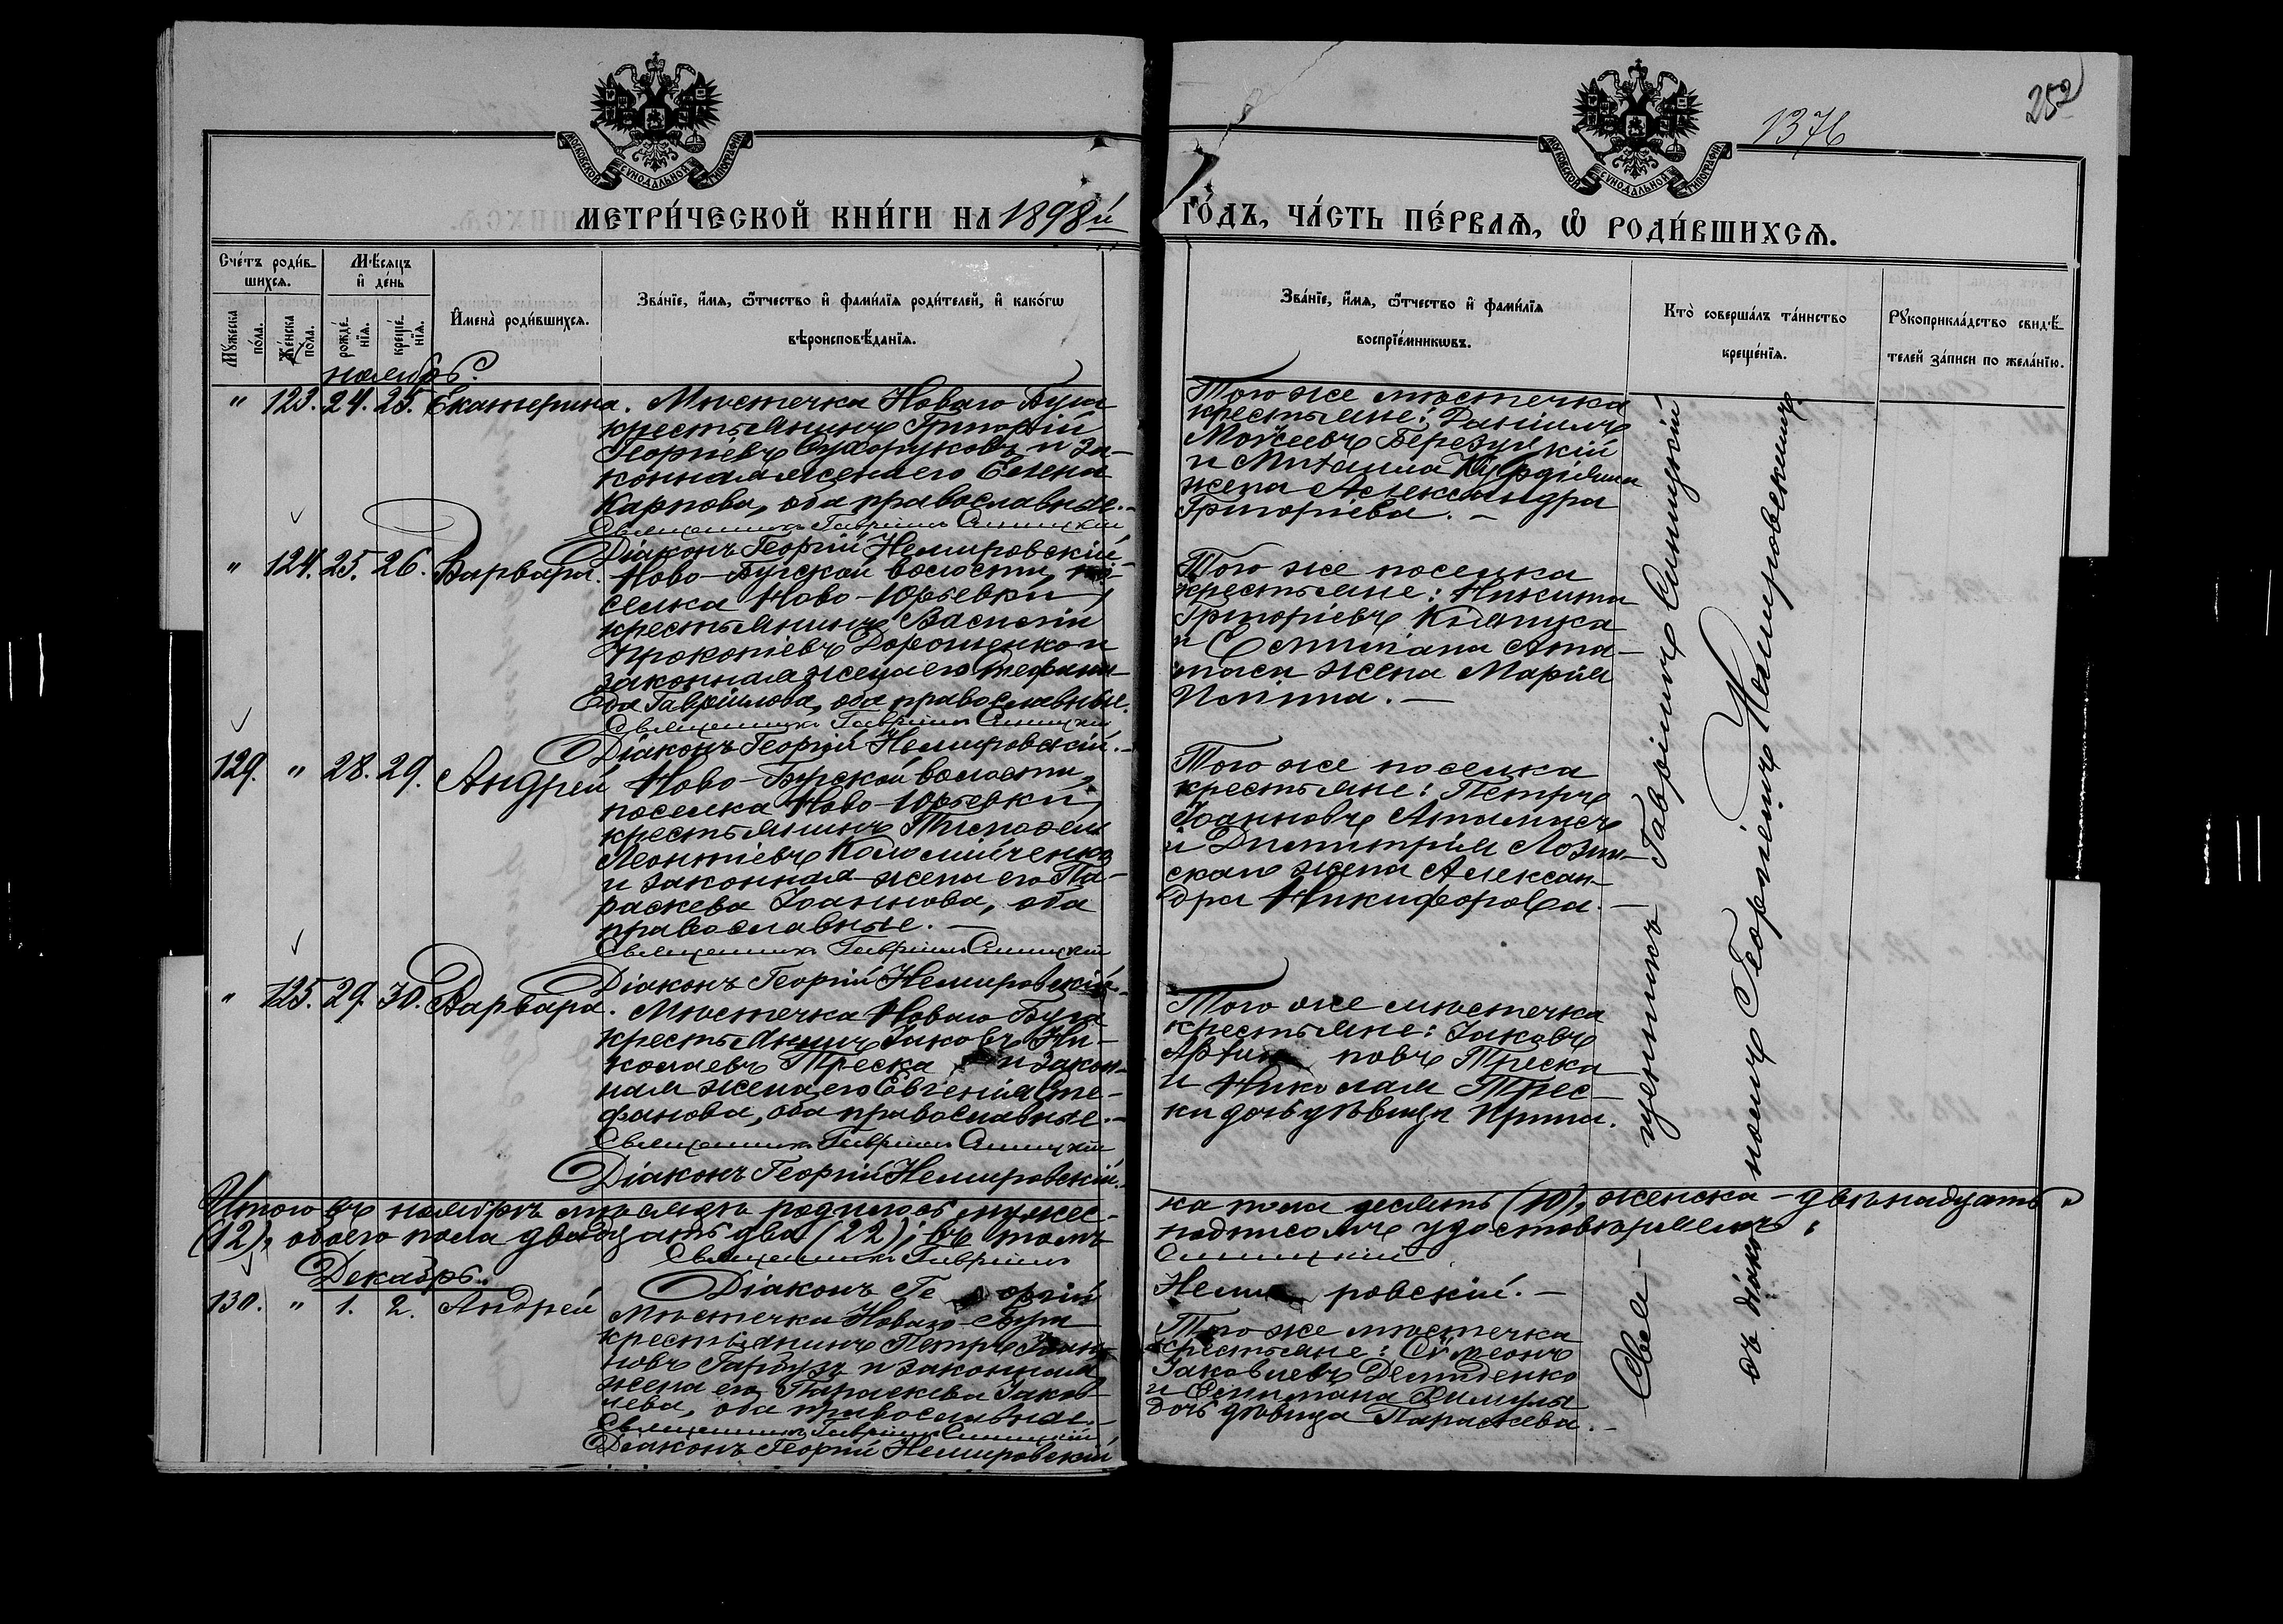 1376
252
МОСКОВСКОЙ СѴНОДАЛЬНОЙ ТИПОГРАФІИ
МОСКОВСКОЙ СѴНОДАЛЬНОЙ ТИПОГРАФІИ
МЕТРИ́ЧЕСКОЙ КНИ́ГИ НА 1898й
ГО́ДЪ, ЧА́СТЬ ПЕ́РВАѦ, Ѡ РОДИ́ВШИХСѦ.
Сче́тъ роди́вшихсѧ.
Мꙋ́жеска по́ла.
Же́нска по́ла.
Мѣ́сѧцъ и҆ де́нь
рожде́нїѧ.
креще́нїѧ.
И҆мена̀ роди́вшихсѧ.
Зва́нїе, и҆́мѧ, ѻ҆́тчество и҆ фами́лїѧ роди́телей, и҆ како́гѡ
вѣроисповѣ́данїѧ.
Зва́нїе, и҆́мѧ, ѻ҆́тчество и҆ фами́лїѧ
воспрїе́мникѡвъ.
Кто̀ соверша́лъ та́инство
креще́нїѧ.
Рꙋкоприкла́дство свидѣ́-
телей за́писи по жела́нїю.
ноябрь.
" 123. 24. 25. Екатерина. Мѣстечка Новаго Буга
крестьянинъ Григорій
Георгіевъ Сухоруковъ и за-
конная жена его Елена
Карпова, оба православные.
Священникъ Гавріилъ Синицкій
Діаконъ Георгій Немировскій
Того же мѣстечка
крестьяне: Даніилъ
Моѵсеевъ Березуцкій
и Михаила
жена Александра
Григоріева.
" 124. 25. 26. Варвара. Ново-Бугской волости, по-
селка Ново-Юрьевки,
крестьянинъ Василій
Прокопіевъ Дорошенко и
законная жена его Стефани-
да Гавріилова, оба православные.
Священникъ Гавріилъ Синицкій
Діаконъ Георгій Немировскій.
Того же поселка
крестьяне: Никита
Григоріевъ
и Емиліана Ата-
маса жена Марія
129. " 28. 29. Андрей Ново-Бугской волости,
поселка Ново-Юрьевки,
крестьянинъ Тимофей
Леонтіевъ Коломійченко
и законная жена его Па-
раскева Іоаннова, оба
православные.
Священникъ Гавріилъ Синицкій
Діаконъ Георгій Немировскій.
Того же поселка
крестьяне: Петръ
Іоанновъ Атамасъ
и Димитрія Лозин-
скаго жена Алексан-
дра Никифорова.
" 125. 29. 30. Варвара. Мѣстечка Новаго Буга
крестьянинъ Іаковъ Ни-
колаевъ Треска и закон-
ная жена его Евгенія Сте-
фанова, оба православные.
Священникъ Гавріилъ Синицкій
Діаконъ Георгій Немировскій.
Того же мѣстечка
крестьяне: Іаковъ
повъ Треска
и Николая Трес-
ки дочь дѣвица Ирина.
Итого въ ноябрѣ мѣсяцѣ родилось мужес-
ка пола десять (10), женска - двѣнадцать
(12), обоего пола двадцать два (22); въ томъ
подписомъ удостовѣряемъ:
Священникъ Гавріилъ
Синицкій
Діаконъ Георгій
Немировскій.
Декабрь.
130. " 1. 2. Андрей Мѣстечка Новаго-Буга
крестьянинъ Петръ Іоан-
новъ Гарбузъ и законная
жена его Параскева Іаков-
лева, оба православные.
Священникъ Гавріилъ Синицкій
Діаконъ Георгій Немировскій
Того же мѣстечка
крестьяне: Сѵмеонъ
Іаковлевъ Демиденко
и Емиліана
дочь дѣвица Параскева.
Свя-
щенникъ Гавріилъ Синицкій
съ діако-
номъ Георгіемъ Немировскимъ.